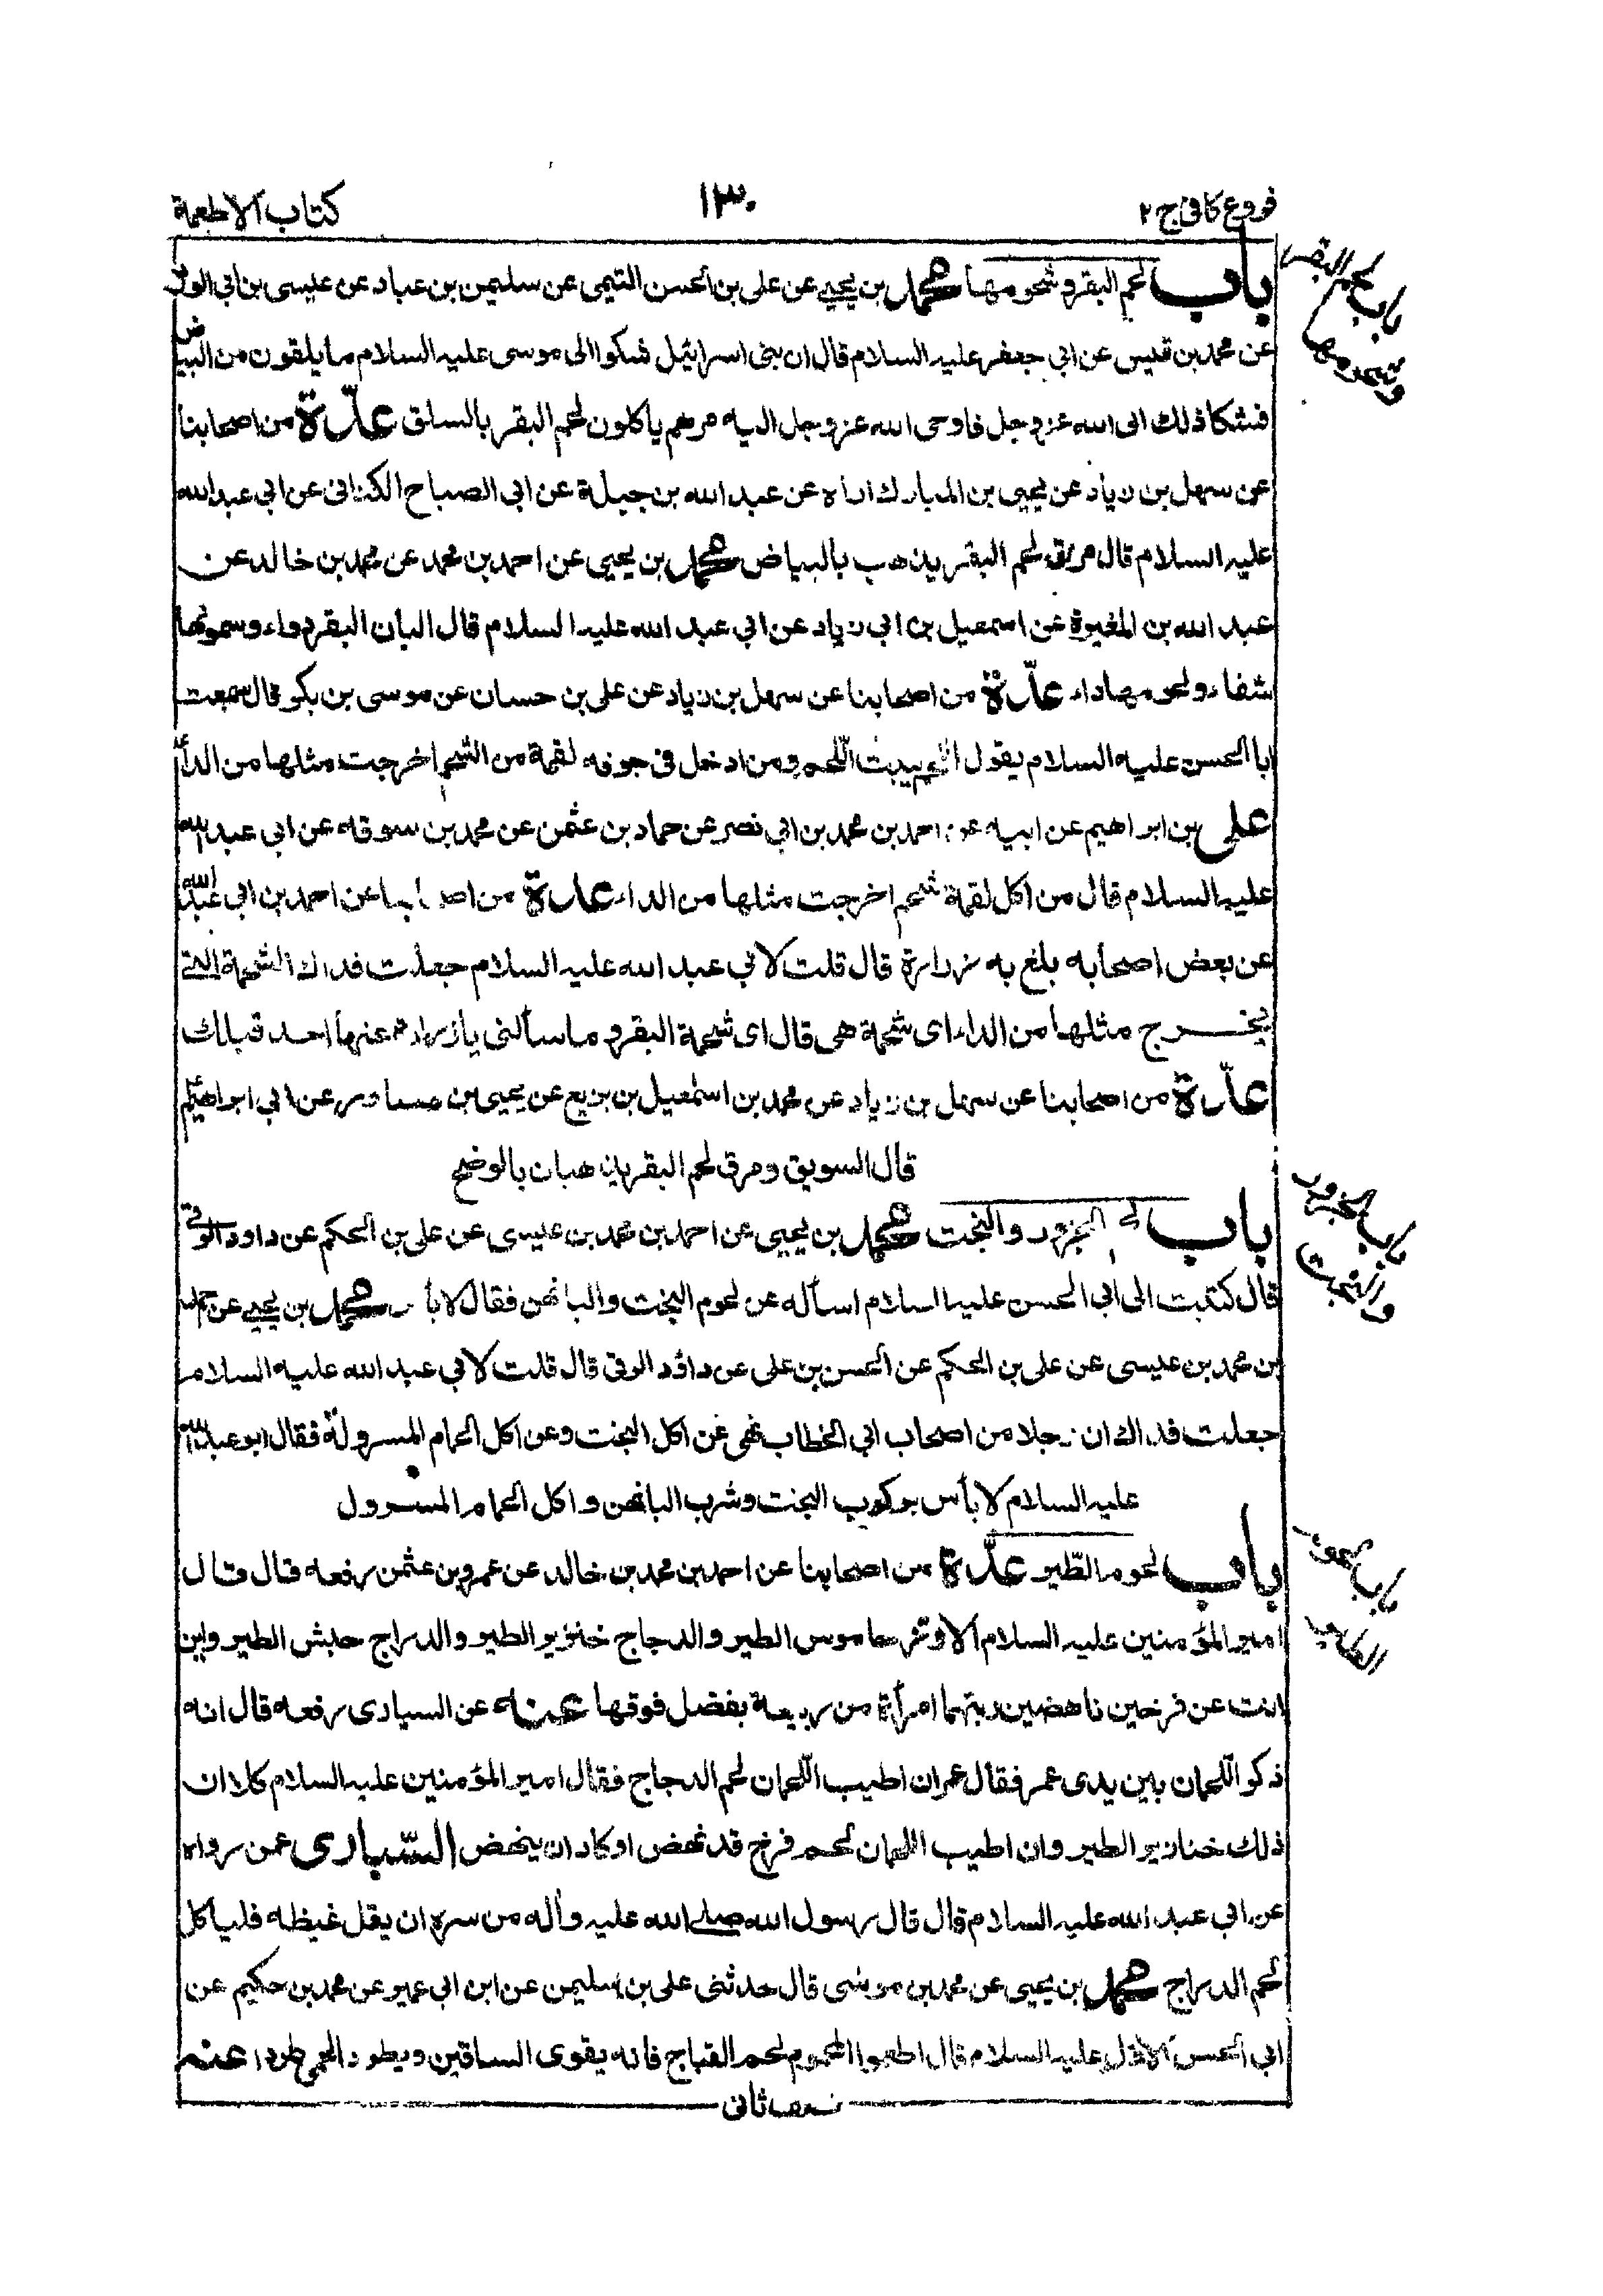 فروع كافى ج ٢
١٣٠
كتاب الاطعمة
باب لحم البقر وشحومها محمد بن يحيى عن على بن الحسن التيمى عن سليمن بن عباد عن عيسى بن ابى الورد
عن محمد بن قيس عن ابى جعفر عليه السلام قال ان بنى اسرائيل شكوا الى موسى عليه السلام ما يلقون من البياض
فشكا ذلك الى الله عز وجل فاوحى الله عز وجل اليه مرهم ياكلون لحم البقر بالسلق عدّة من اصحابنا
عن سهل بن زياد عن يحيى بن المبارك عن عبد الله بن جبلة عن ابى الصباح الكنانى عن ابى عبد الله
عليه السلام قال مرق لحم البقر يذهب بالبياض محمد بن يحيى عن احمد بن محمد عن محمد بن خالد عن
عبد الله بن المغيرة عن اسمعيل بن ابى زياد عن ابى عبد الله عليه السلام قال البان البقر دواء وسمونها
شفاء ولحومها داء عدّة من اصحابنا عن سهل بن زياد عن على بن حسان عن موسى بن بكر قال سمعت
ابا الحسن عليه السلام يقول اللحم ينبت اللّحم ومن ادخل فى جوفه لقمة من الشحم اخرجت مثلها من الداء
على بن ابراهيم عن ابيه عن احمد بن محمد بن ابى نصر عن حماد بن عثمن عن محمد بن سوقه عن ابى عبد الله
عليه السلام قال من اكل لقمة شحم اخرجت مثلها من الداء عدة من اصحابنا عن احمد بن ابى عبد الله
عن بعض اصحابه بلغ به زرارة قال قلت لابى عبد الله عليه السلام جعلت فداك الشحمة التى
يخرج مثلها من الداء اى شحمة هى قال اى شحمة البقر وما سألنى يا زرارة عنها احد قبلك
عدّة من اصحابنا عن سهل بن زياد عن محمد بن اسمعيل بن بزيع عن يحيى بن مساور عن ابى ابراهيم
قال السويق ومرق لحم البقر يذهبان بالوضح
باب لحم الجزور والبخت محمد بن يحيى عن احمد بن محمد بن عيسى عن على بن الحكم عن داود الرقى
قال كتبت الى ابى الحسن عليه السلام اسأله عن لحوم البخت والبانهن فقال لا بأس محمد بن يحيى عن احمد
بن محمد بن عيسى عن على بن الحكم عن الحسن بن على عن داؤد الرقى قال قلت لابى عبد الله عليه السلام
جعلت فداك ان رجلا من اصحاب ابى الخطاب نهى عن اكل البخت وعن اكل الحمام المسرولة فقال ابو عبد الله
عليه السلام لا بأس بركوب البخت وشرب البانهن واكل الحمام المسرول
باب لحوم الطّير عدّة من اصحابنا عن احمد بن محمد بن خالد عن عمرو بن عثمن رفعه قال قال
امير المؤمنين عليه السلام الاوز جاموس الطير والدجاج خنزير الطير والدراج حبش الطير واين
انت عن فرخين ناهضين ربتهما امرأة من ربيعة بفضل قوتها عنه عن السيارى رفعه قال انه
ذكر اللّحمان بين يدى عمر فقال عمر ان اطيب اللّحمان لحم الدجاج فقال امير المؤمنين عليه السلام كلا ان
ذلك خنازير الطير وان اطيب اللحمان لحم فرخ قد نهض او كاد ان ينهض السّيارى عمن رواه
عن ابى عبد الله عليه السلام قال قال رسول الله صلى الله عليه وآله من سره ان يقل غيظه فلياكل
لحم الدراج محمد بن يحيى عن محمد بن موسى قال حدثنى على بن سليمن عن ابن ابى عمير عن محمد بن حكيم عن
ابى الحسن الاول عليه السلام قال اطعموا المحموم لحم القباج فانه يقوى الساقين ويطرد الحمى طردا عنه
نصف ثانى
باب لحم البقر
وشحومها
باب الجزور
والبخت
باب لحوم
الطير